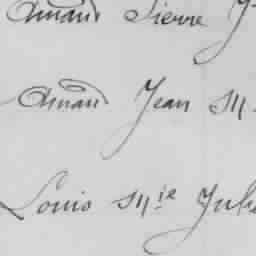 Amand Pierre J
Amand Jean M
Louis M.ie Jule